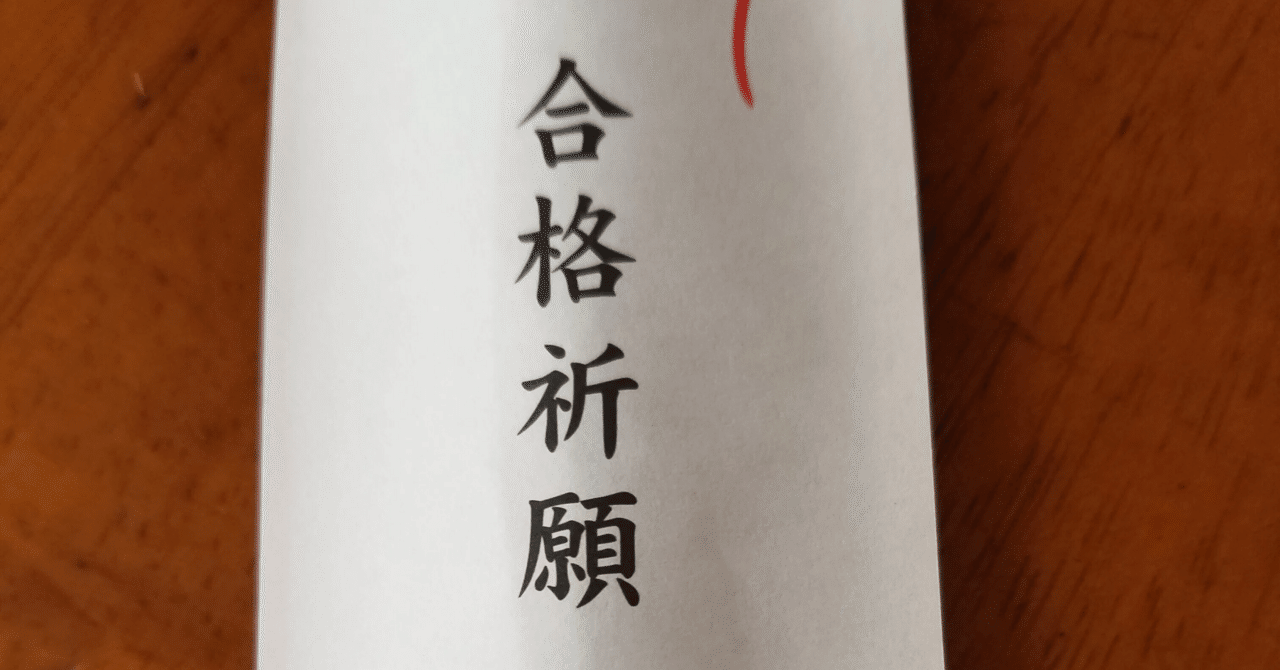 合格祈願